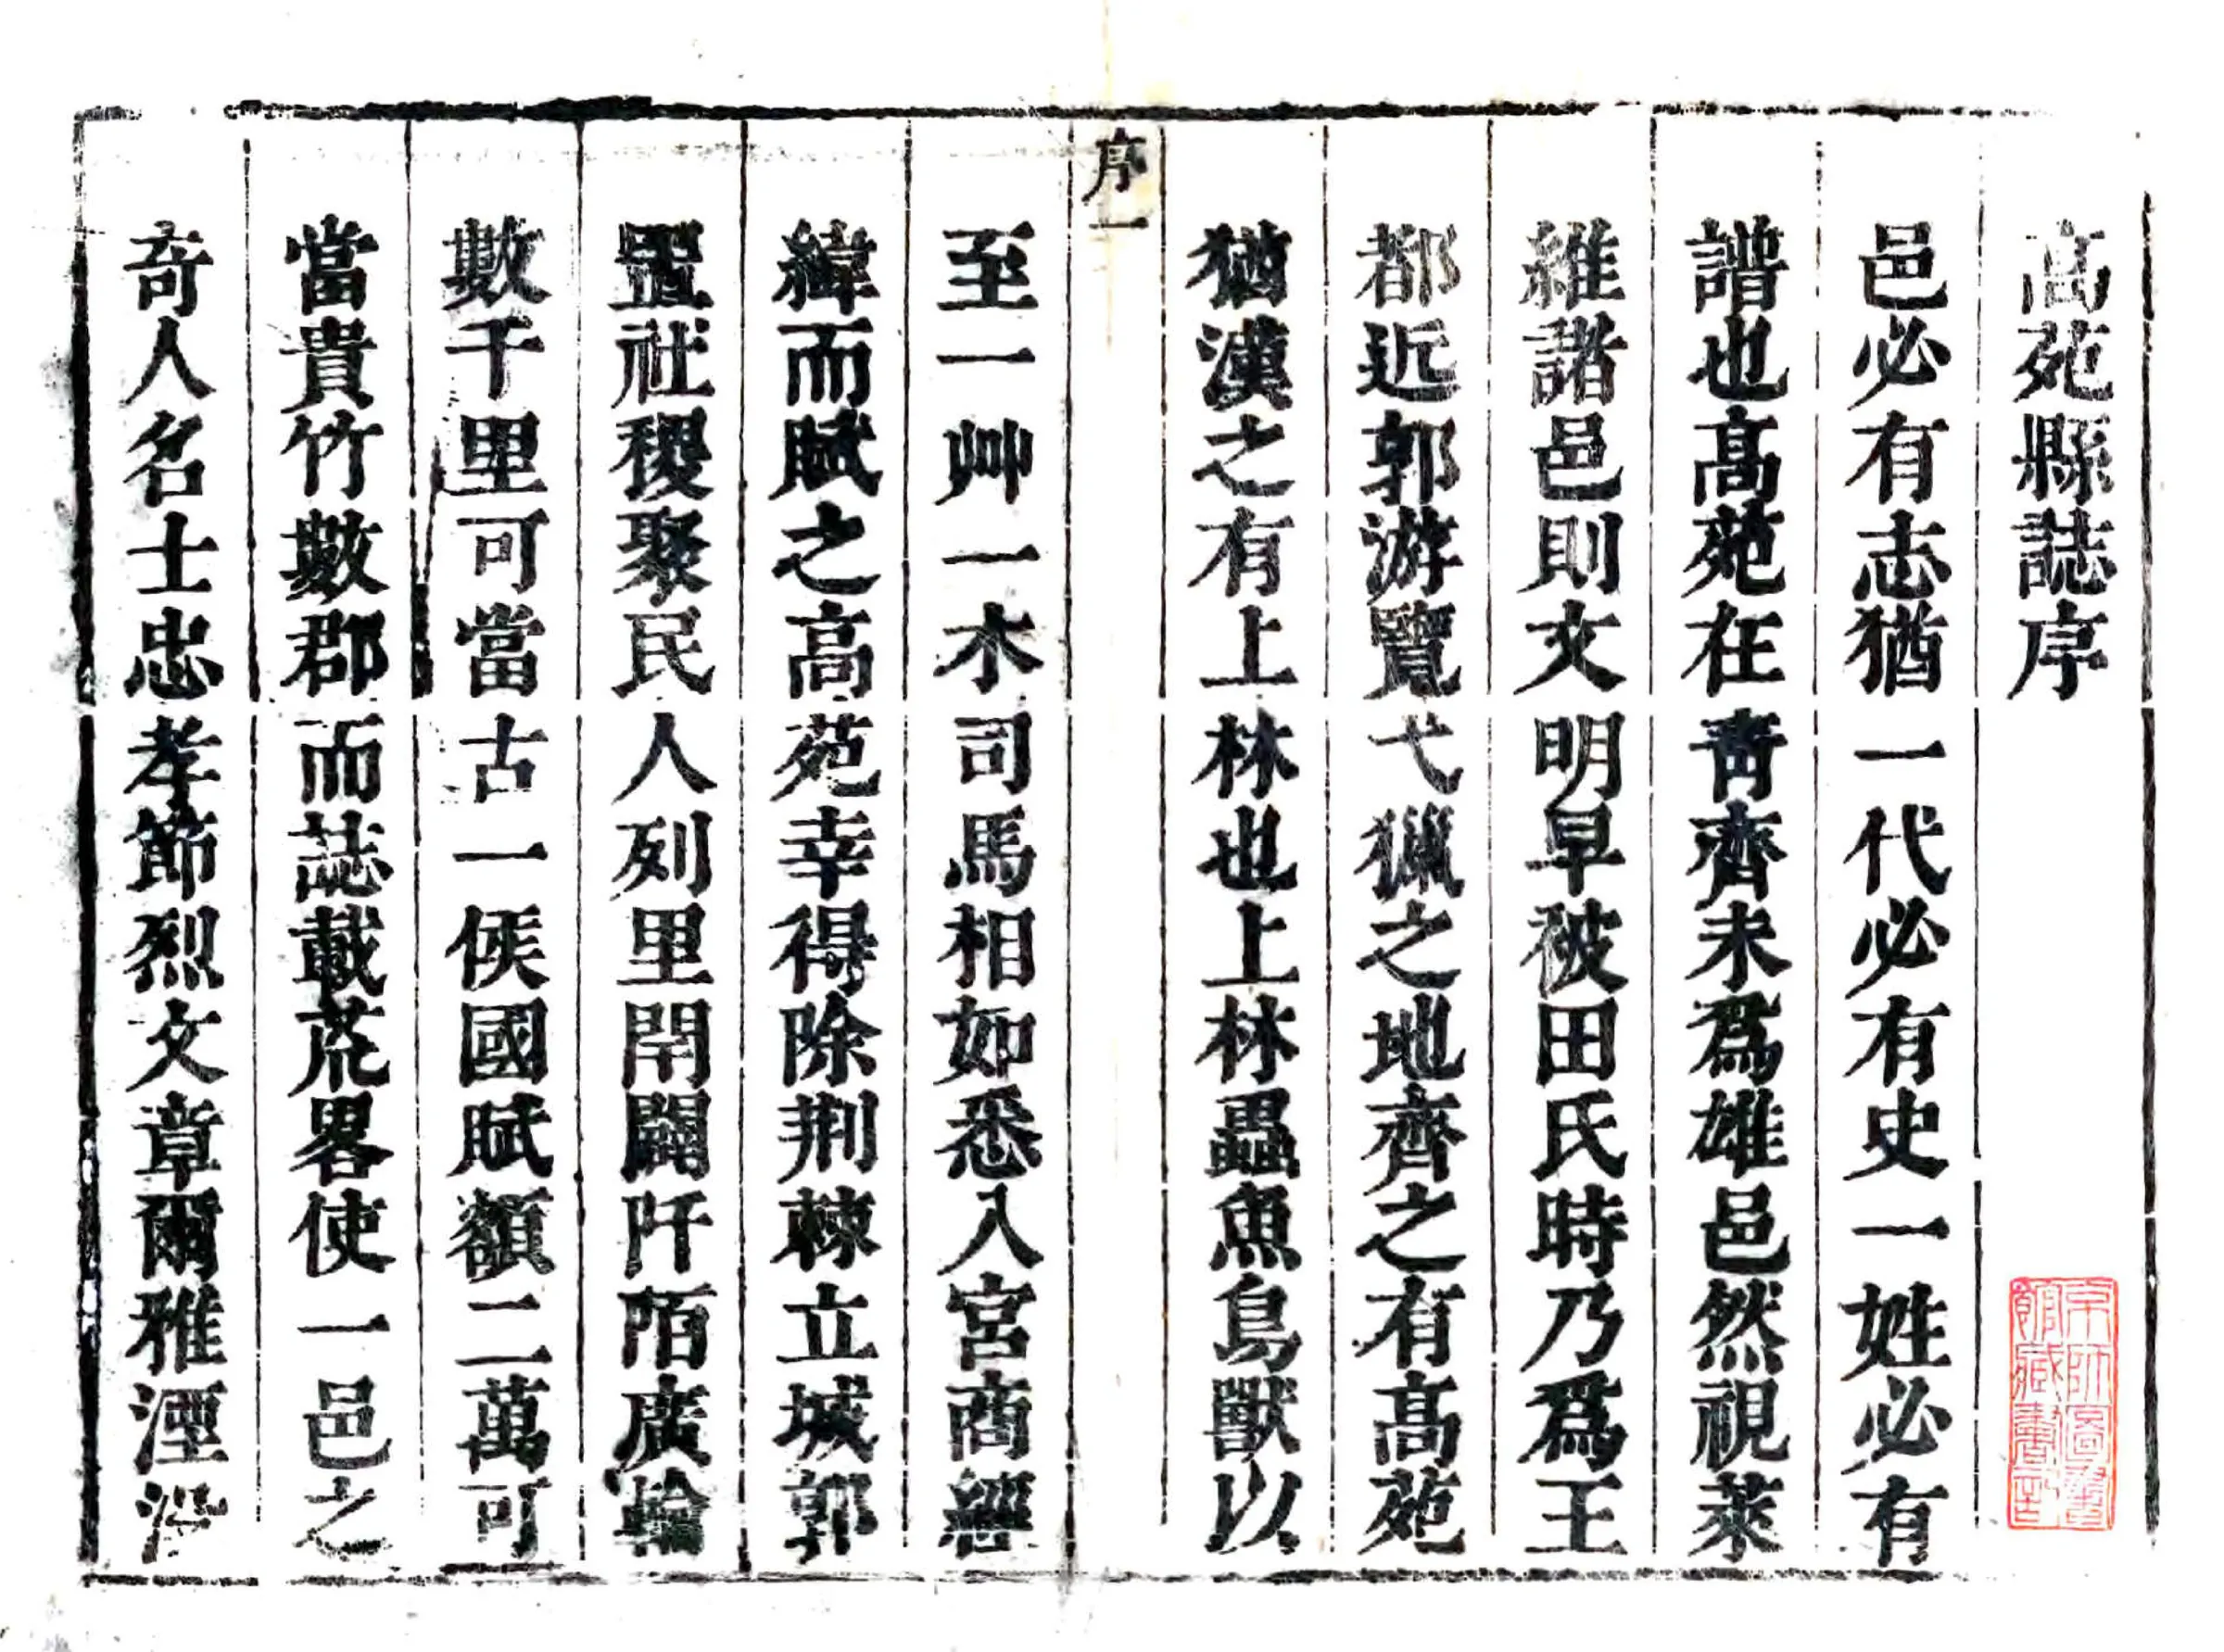 高苑縣誌序
邑必有志猶一代必有史一姓必有
譜也髙苑在青齊未爲雄邑然視萊
維諸邑則文明早被田氏時乃爲王
都近郭游覽弋獵之地齊之有髙苑
猶漢之有上林也上林蟲魚鳥獸以
序一
至一艸一木司馬相如悉入宮商經
緯而賦之高苑幸得除荆棘立城郭
置社稷聚民人列里閈闢阡陌廣輪
數千里可當古一侯國賦額二萬可
當貴竹數郡而誌載荒畧使一邑之
奇人名士忠孝節烈文章爾雅湮没
京師圖書館藏書記